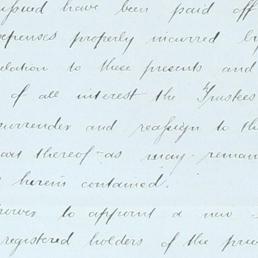 issued have been paid off
expenses properly incurred by
relation to these presents and
of all interest the Trustees
surrender and reassign to th
part thereof as may remain
herein contained.
power to appoint a new
registered holders of the